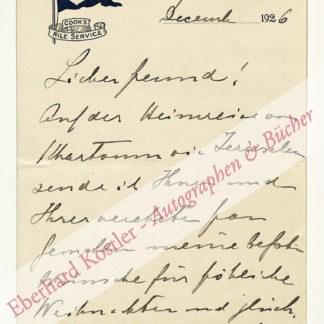 COOK'S
NILE SERVICE
December 1926
Lieber Freund!
Auf der Heimreise von
Khartoum via Jerusalem
sende ich Ihnen und
Ihrer verehrten Frau
Gemahlin meine besten
Wünsche für fröhliche
Weihnachten und glück-
Eberhard Köstler - Autographen & Bücher